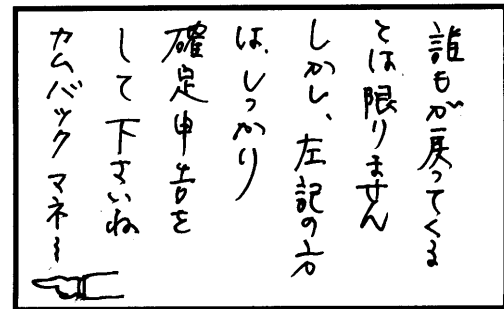 誰もが戻ってくる
とは限りません
しかし、左記の方
は、しっかり
確定申告を
して下さいね
カムバックマネー